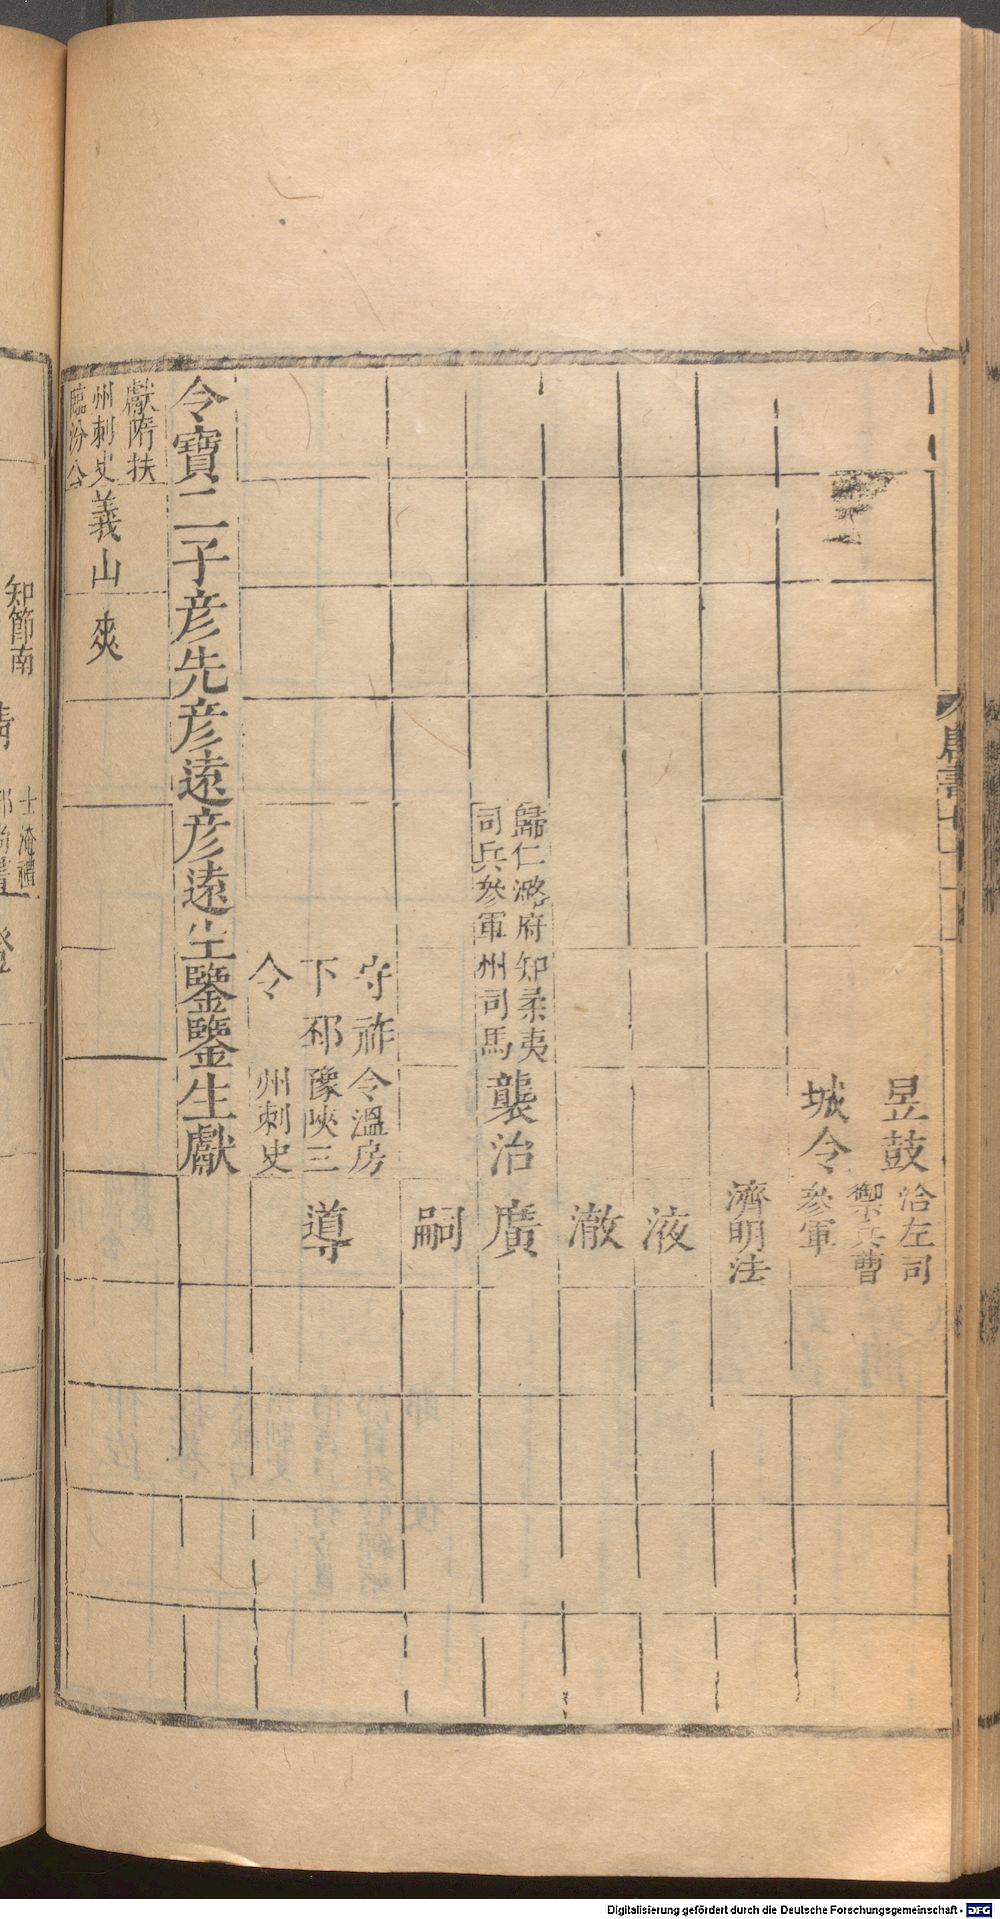 洽左司
禦兵曹
參軍
昱鼓
城令
濟明法
液
澈
歸仁潞府
司兵參軍
知柔夷
州司馬
襲治
廣
嗣
守祚
下邳
令
令溫房
豫峽三
州刺史
導
令寶二子彥先彥遠彥遠生鑒鑒生獻
獻隋扶
州刺史
臨汾公
義山
爽
知節南
Digitalisierung gefördert durch die Deutsche Forschungsgemeinschaft - DFG